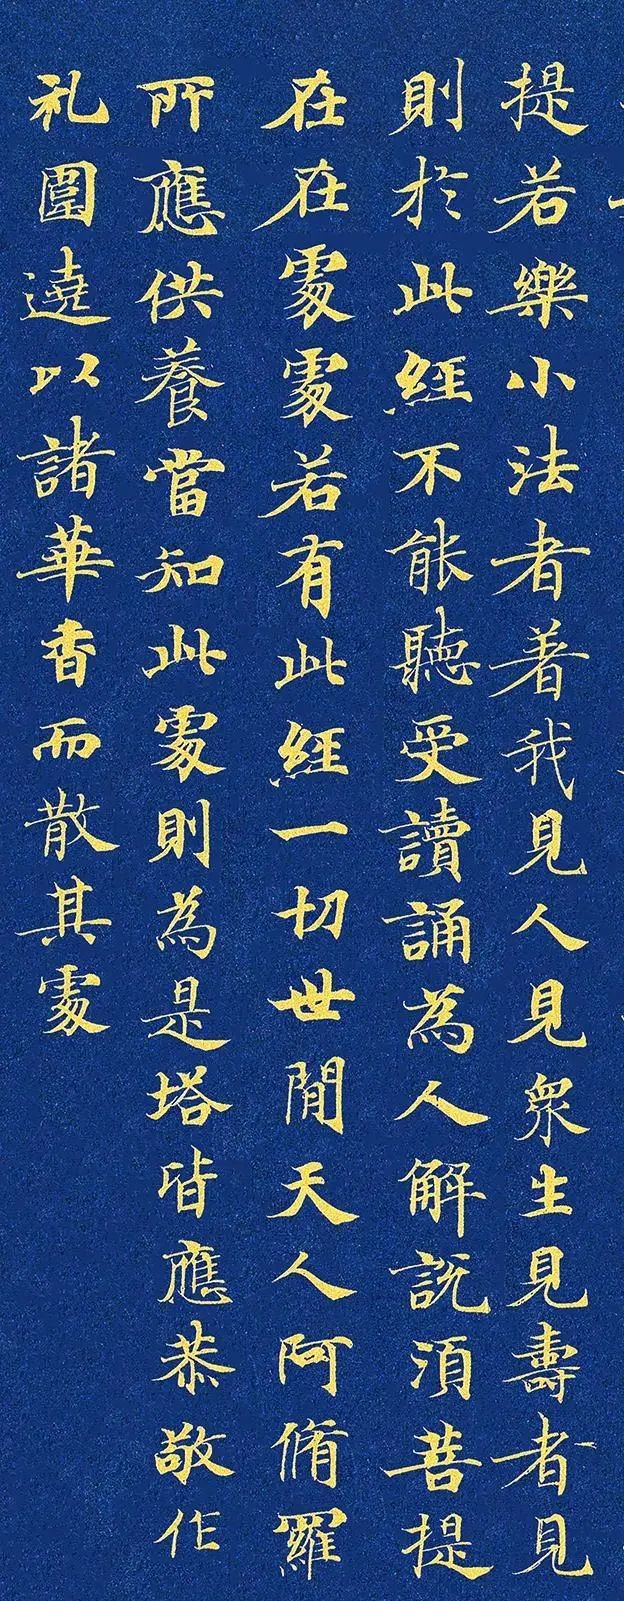 提若樂小法者著我見人見眾生見壽者見
則於此經不能聽受讀誦為人解說須菩提
在在處處若有此經一切世間天人阿脩羅
所應供養當知此處則為是塔皆應恭敬作
礼圍遶以諸華香而散其處